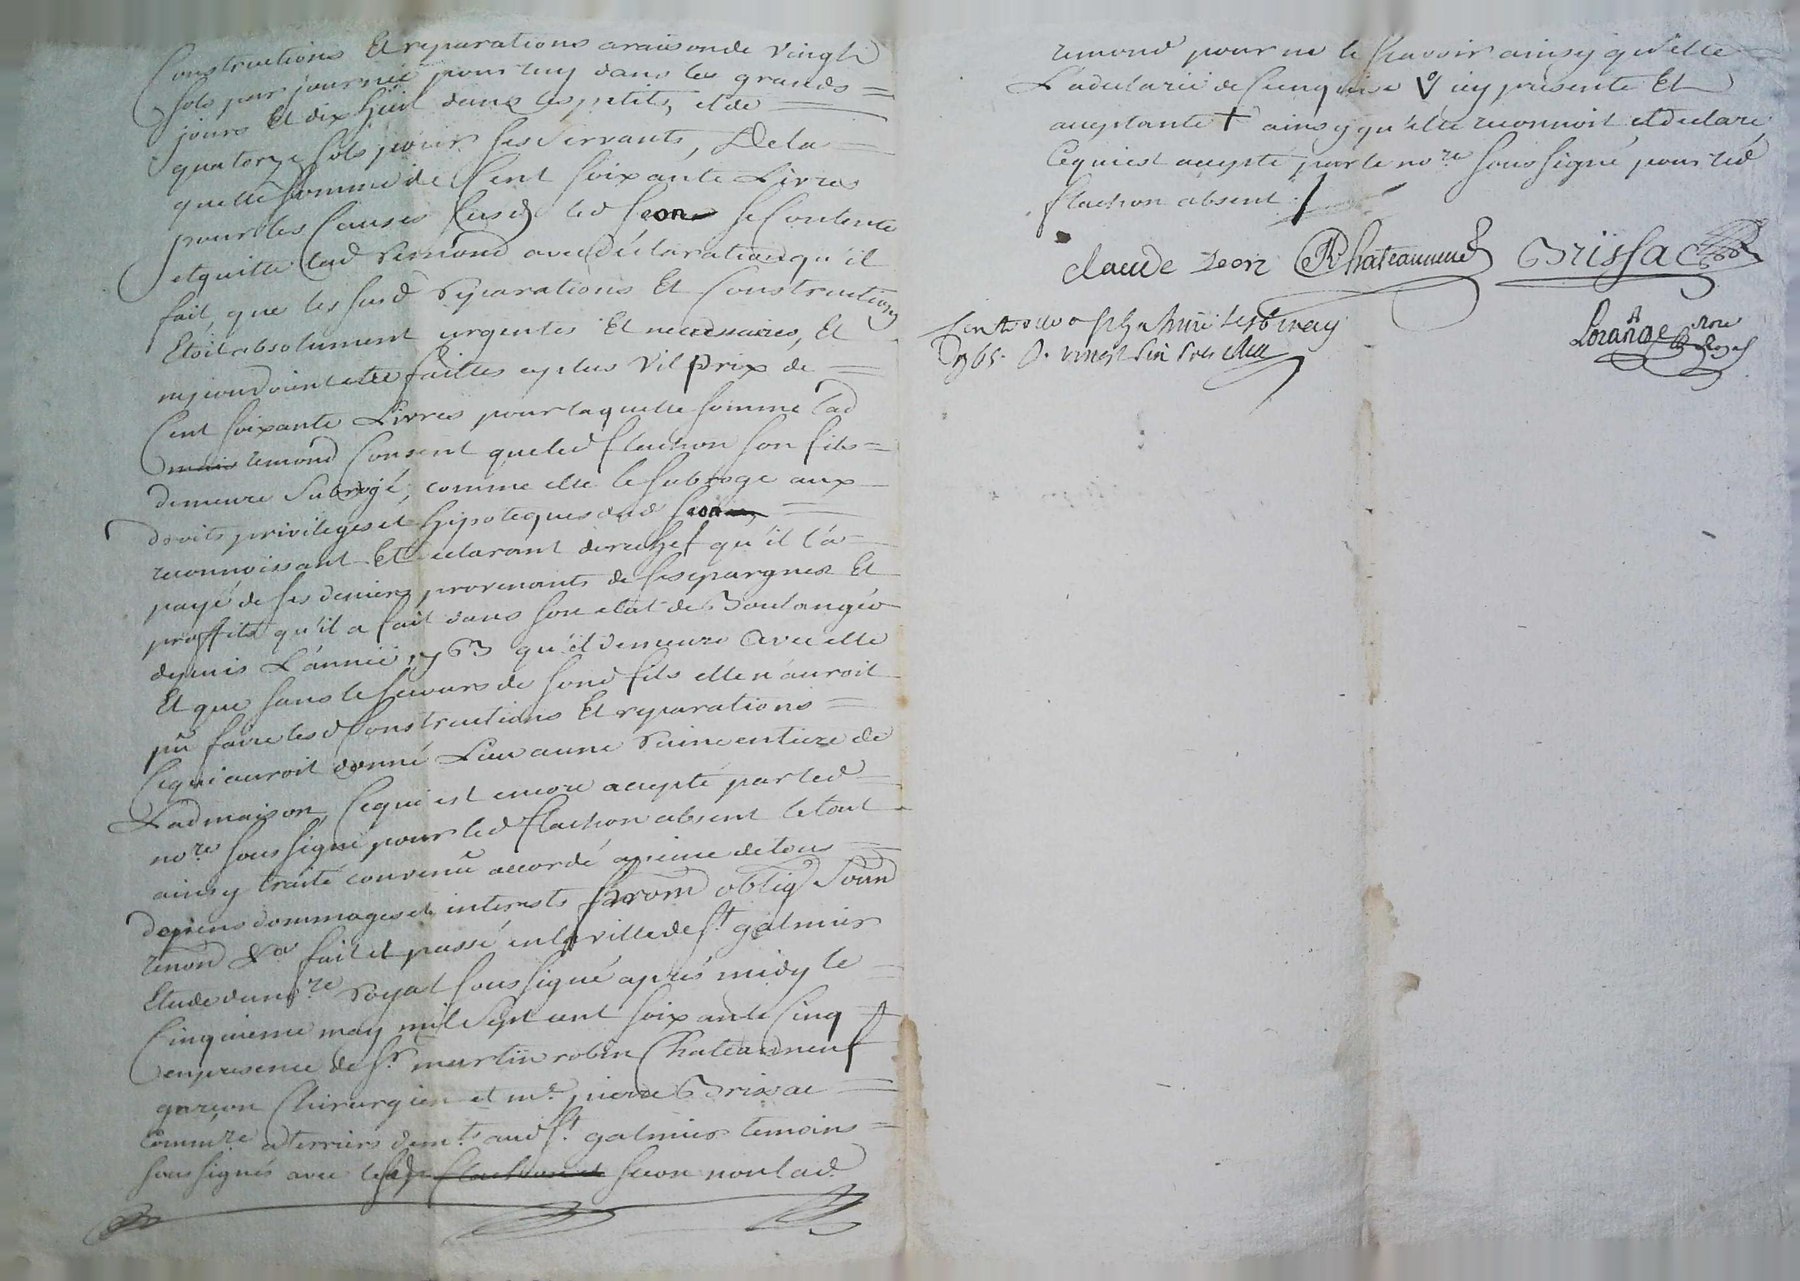 Constructions Et reparations a raison de vingt
sols par journée pour luy dans les grands
jours Et dix huit dans les petits, et de
quatorze sols pour ses servants, De la
quelle somme de Cent soixante Livres
pour les Causes susd. led seon se Contente
et quitte lad Remond avec déclaration qu'il
fait, que les susd Réparations Et Constructions
Etoit absolument urgentes Et necessaires, Et
Cent soixante Livres pour laquelle somme lad
remond Consent que led flachon son fils
demeure subrogé, comme elle le subroge aux
droits privileges et hipoteques dud seon
reconnoissant Et declarant derechef qu'il l'a
payé de ses deniers provenants de ses epargnes Et
proffits qu'il a fait dans son etat de Boulanger
depuis L'année 1763 qu'il demeure avec elle
Et que sans le secours de sond fils elle n'auroit
pû faire lesd Constructions Et reparations
Ce qui auroit donné Lieu a une Ruine entiere de
Lad maison, Ce qui est encore accepté par led
nore. sous signé pour led flachon absent le tout
ainsy traité convenû accordé a peine de tous
depens dommages et interests prom oblig Soum
renon &a fait et passé en la ville de st. galmier
Etude du nore Royal soussigné aprés midy le
Cinquieme may mil sept cent soixante Cinq
en presence de sr. martin robin Chateauneuf
garçon Chirurgien et me. pierre Brissac
Commre. a terriers demt. aud st. galmier temoins
sous signés avec led flachon et seon non lad.
remond pour ne le scavoir ainsy qu'elle
L'a declaré de ce enquise icy presente Et
acceptante ainsy qu'elle reconnoit et declare
Ce qui est accepté par le nore. sous signé pour led
flachon absent ./.
claude seon Chateauneuf Brissac
Lorange nore Royal